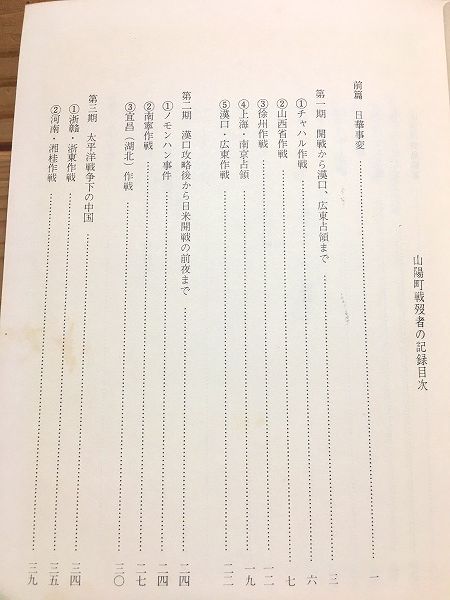 山陽町戦歿者の記録目次
前篇 日華事変……一
第一期 開戦から漢口、広東占領まで……三
①チャハル作戦……六
②山西省作戦……七
③徐州作戦……一二
④上海・南京占領……一九
⑤漢口・広東作戦……二二
第二期 漢口攻略後から日米開戦の前夜まで……二四
①ノモンハン事件……二四
②南寧作戦……二七
③宜昌(湖北)作戦……三〇
第三期 太平洋戦争下の中国
①浙贛・浙東作戦……三四
②河南・湘桂作戦……三五
三九